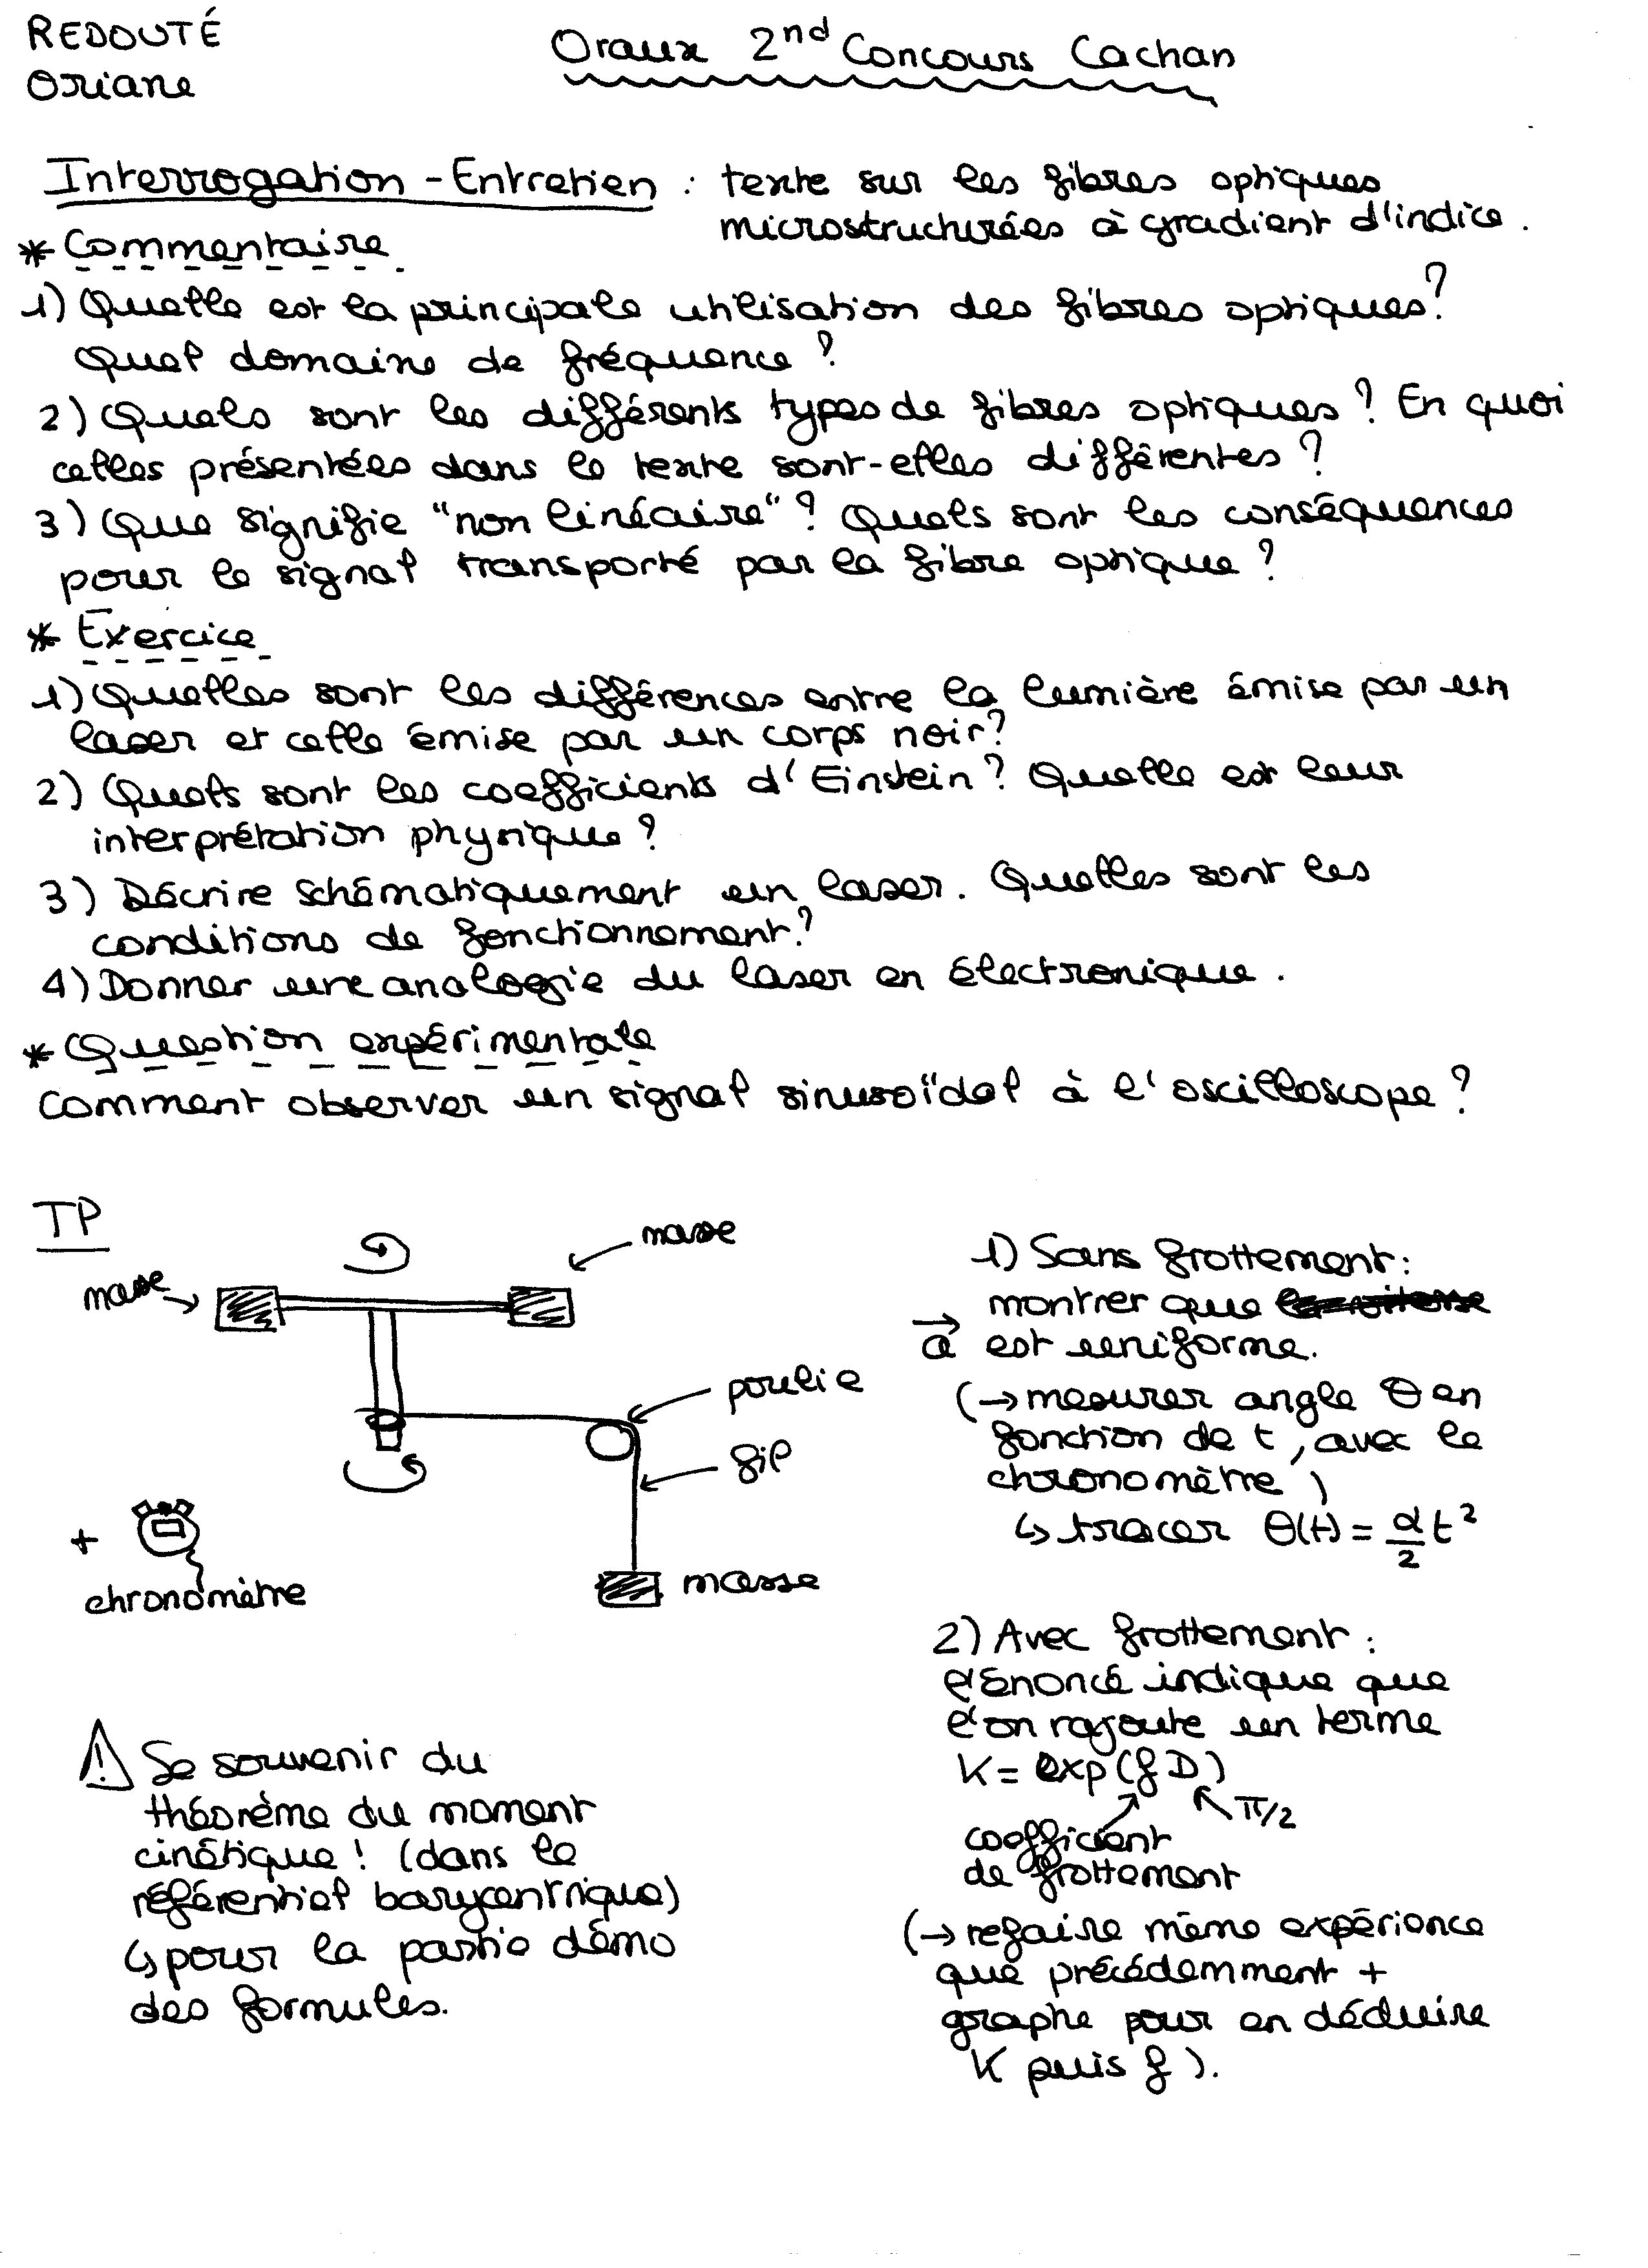 REDOUTÉ
Oriane
Oraux 2nd Concours Cachan
Interrogation - Entretien : texte sur les fibres optiques
microstructurées à gradient d'indice.
* Commentaire
1) Quelle est la principale utilisation des fibres optiques?
Quel domaine de fréquence ?
2) Quels sont les différents types de fibres optiques ? En quoi
celles présentées dans le texte sont-elles différentes ?
3) Que signifie "non linéaire" ? Quels sont les conséquences
pour le signal transporté par la fibre optique ?
* Exercice
1) Quelles sont les différences entre la lumière émise par un
laser et celle émise par un corps noir?
2) Quels sont les coefficients d'Einstein ? Quelle est leur
interprétation physique ?
3) Décrire schématiquement un laser. Quelles sont les
conditions de fonctionnement ?
4) Donner une analogie du laser en électronique.
* Question expérimentale
Comment observer un signal sinusoïdal à l'oscilloscope ?
TP
masse
masse
poulie
fil
masse
+
chronomètre
1) Sans frottement :
montrer que
a⃗ est uniforme.
(→ mesurer angle θ en
fonction de t, avec le
chronomètre)
↳ tracer θ(t) = α/2 t²
2) Avec frottement :
l'énoncé indique que
l'on rajoute un terme
K = exp(fD)
π/2
coefficient
de frottement
(→ refaire même expérience
que précédemment +
graphe pour en déduire
K puis f).
⚠ Se souvenir du
théorème du moment
cinétique ! (dans le
référentiel barycentrique)
↳ pour la partie démo
des formules.